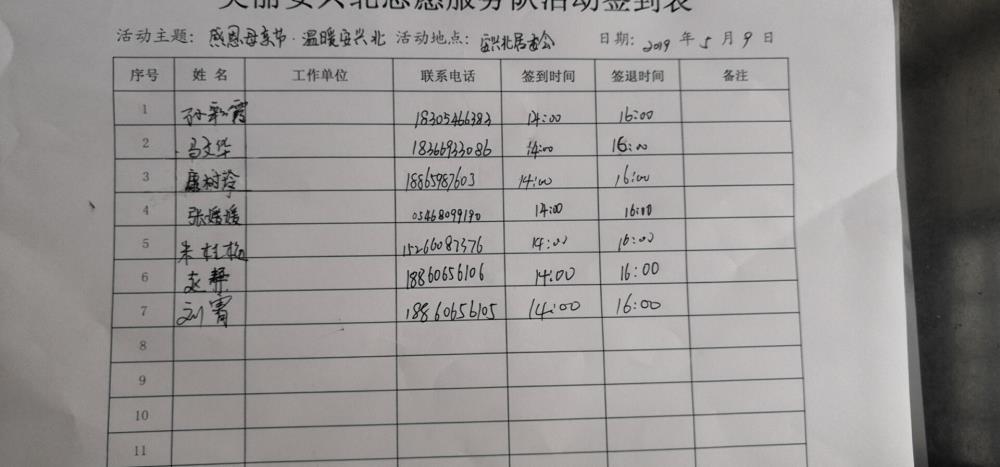 美丽安兴北志愿服务队活动签到表
活动主题: 感恩母亲节·温暖安兴北 活动地点: 安兴北居委会 日期: 2019 年 5 月 9 日
序号 姓名 工作单位 联系电话 签到时间 签退时间 备注
1 孙彩霞 18305466383 14:00 16:00
2 马文华 18366933086 14:00 16:00
3 唐树玲 18865987603 14:00 16:00
4 张媛媛 05468099190 14:00 16:00
5 朱桂梅 15266087376 14:00 16:00
6 赵静 18860656106 14:00 16:00
7 刘霄 18860656105 14:00 16:00
8
9
10
11